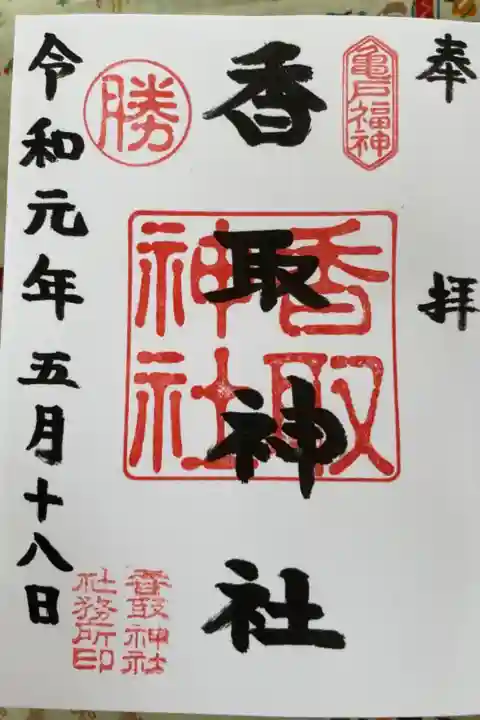 奉拝
亀戸福神
香取神社
香取
神社
勝
香取神社
社務所印
令和元年五月十八日